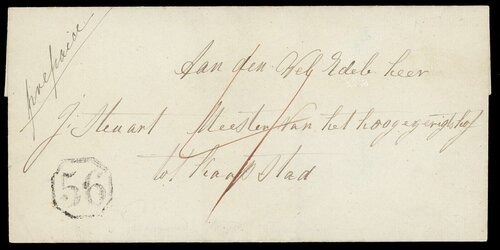 prepaid
Aan den Wel Edele heer
J. Steuart Meester van het hoogegerigtshof
tot Kaap Stad
56